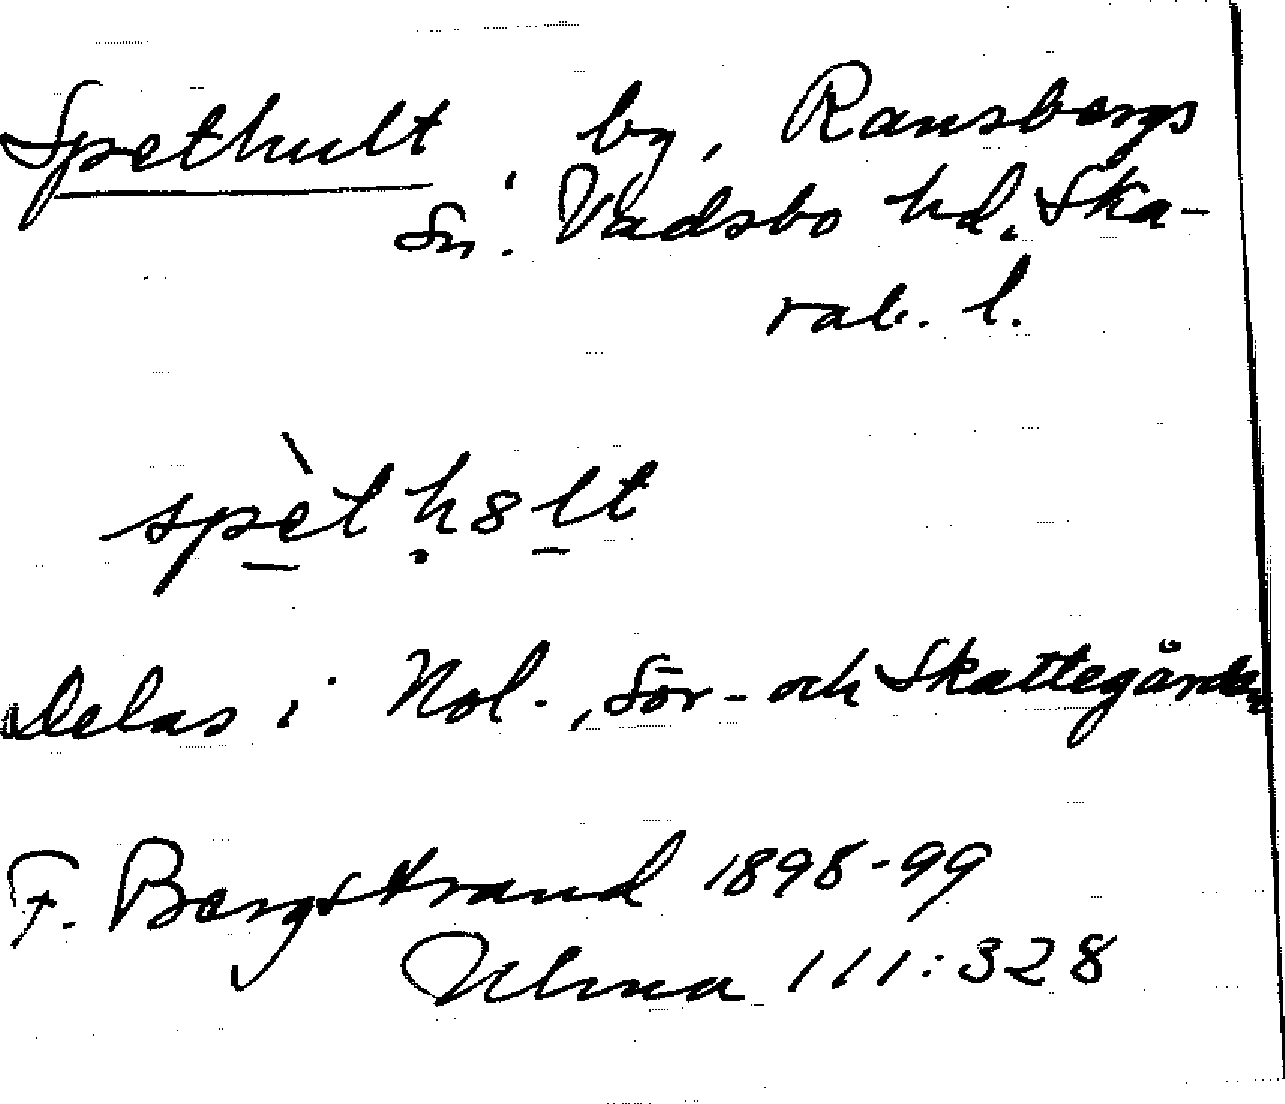 Spethult by, Ransbergs
sn. Vadsbo hd. Ska-
rab. l.
spèt h8lt
Delas i Nol-, Sör- och Skattegården
F. Bergstrand 1898-99
Ulma 111:328